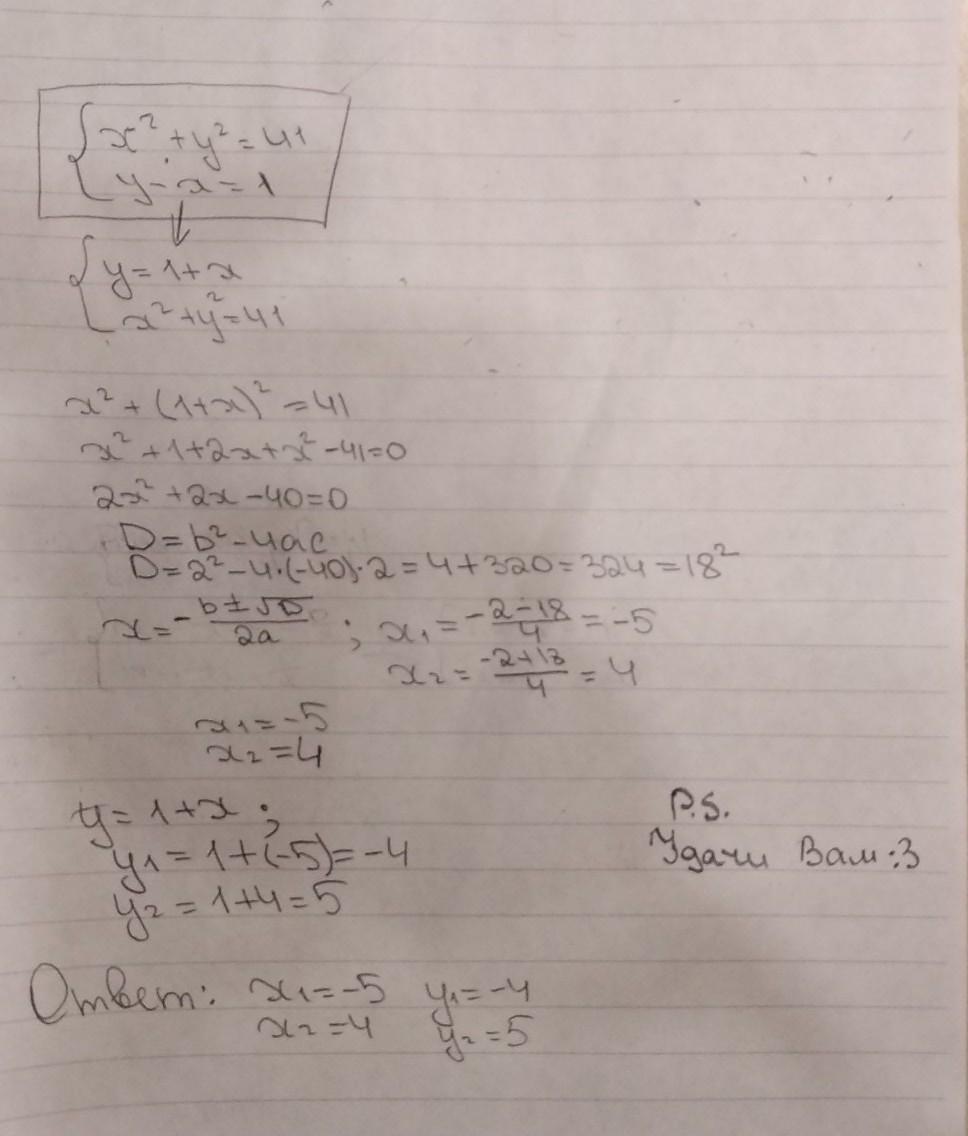 x² + y² = 41
y - x = 1
y = 1 + x
x² + y² = 41
x² + (1+x)² = 41
x² + 1 + 2x + x² - 41 = 0
2x² + 2x - 40 = 0
D = b² - 4ac
D = 2² - 4·(-40)·2 = 4 + 320 = 324 = 18²
x = - b ± √D / 2a ; x₁ = - 2 - 18 / 4 = -5
x₂ = -2 + 18 / 4 = 4
x₁ = -5
x₂ = 4
y = 1 + x ;
y₁ = 1 + (-5) = -4
y₂ = 1 + 4 = 5
P.S.
Удачи Вам :3
Ответ: x₁ = -5 y₁ = -4
x₂ = 4 y₂ = 5